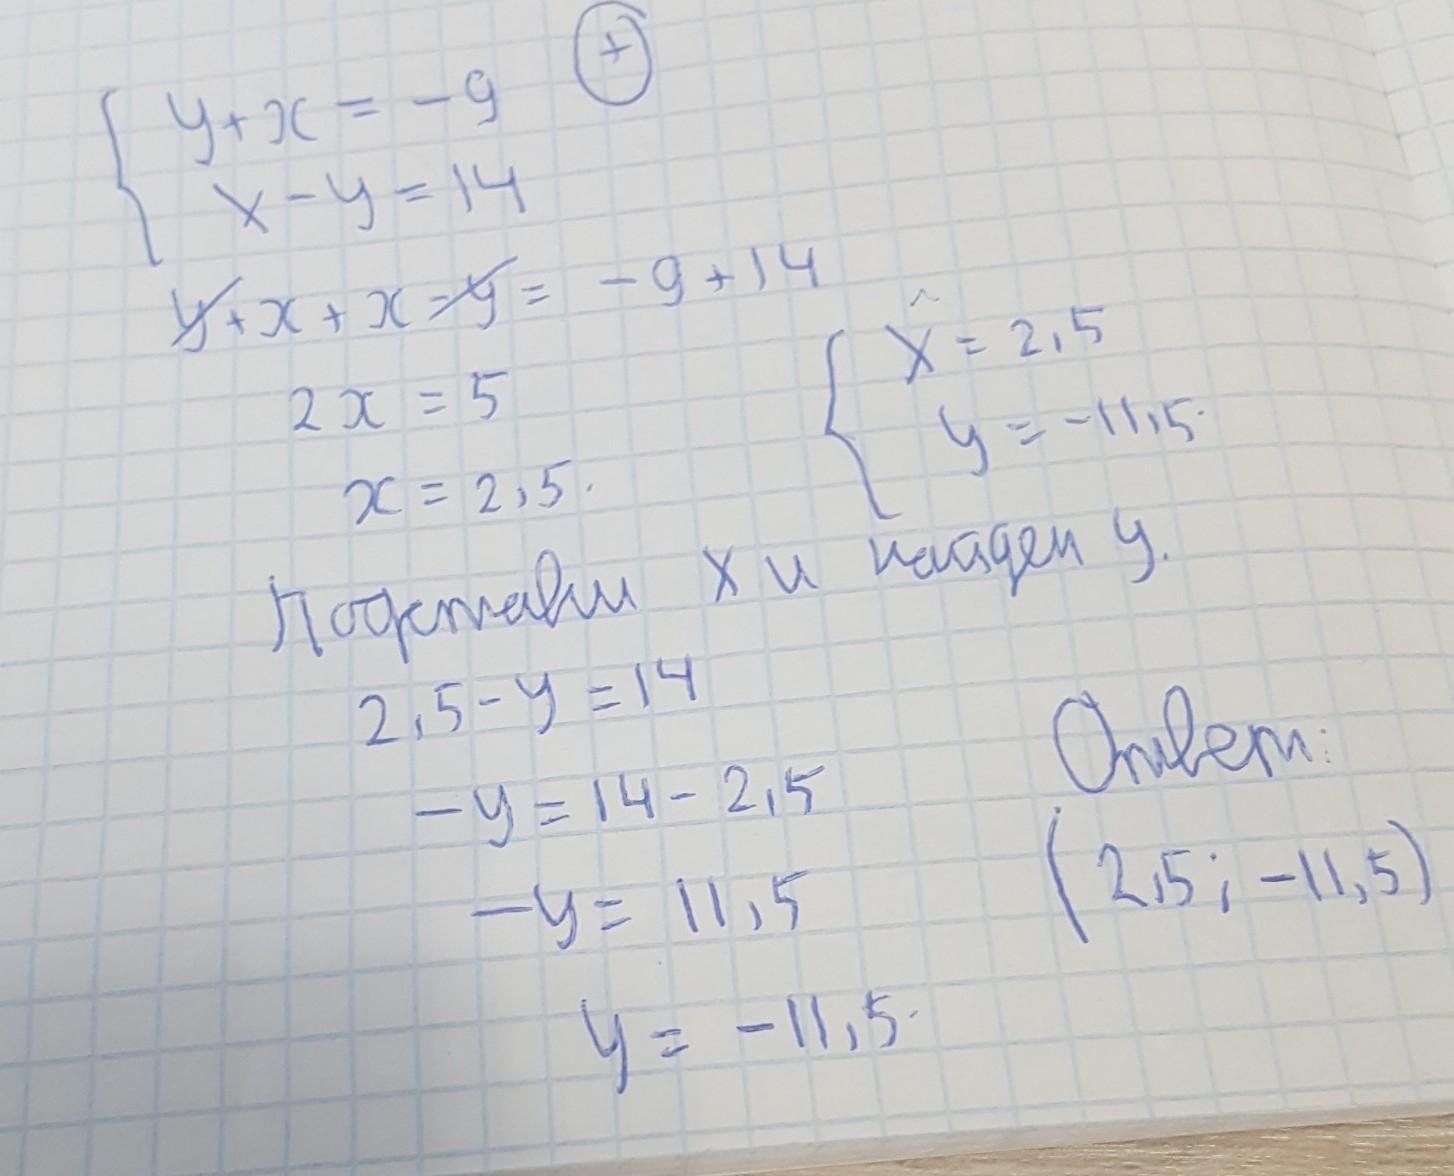 y+x = -9 (+)
x-y=14
y+x+x-y= -9+14
2x = 5
x = 2,5.
{ x = 2,5
y = -11,5.
Подставим x и найдем y.
2,5-y=14
-y=14-2,5
-y= 11,5
y = -11,5.
Ответ:
(2,5; -11,5)